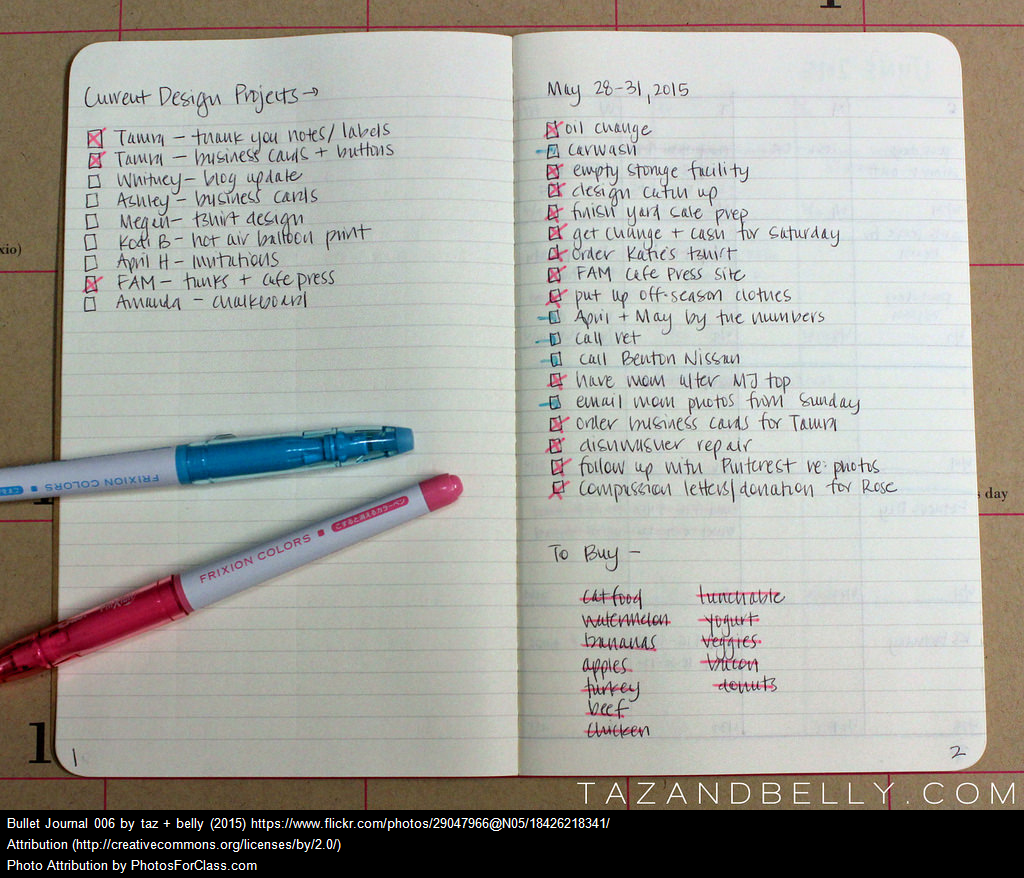 Current Design Projects →
Tamra – thank you notes/labels
Tamra – business cards + buttons
Whitney – blog update
Ashley – business cards
Megan – tshirt design
Kodi B – hot air balloon print
April H – invitations
FAM – thanks + cafe press
Amanda – chalkboard
1
May 28-31, 2015
oil change
carwash
empty storage facility
design catch up
finish yard sale prep
get change + cash for Saturday
order Katie's tshirt
FAM Cafe Press site
put up off-season clothes
April + May by the numbers
call vet
call Benton Nissan
have mom alter MJ top
email mom photos from Sunday
order business cards for Tamra
dishwasher repair
follow up with Pinterest re: photos
Compassion letters/donation for Rose
To Buy –
cat food
watermelon
bananas
apples
turkey
beef
chicken
lunchable
yogurt
veggies
bacon
donuts
2
FRIXION COLORS
FRIXION COLORS ■ こすると消えるカラーペン
xio)
s day
1
TAZANDBELLY.COM
Bullet Journal 006 by taz + belly (2015) https://www.flickr.com/photos/29047966@N05/18426218341/
Attribution (http://creativecommons.org/licenses/by/2.0/)
Photo Attribution by PhotosForClass.com